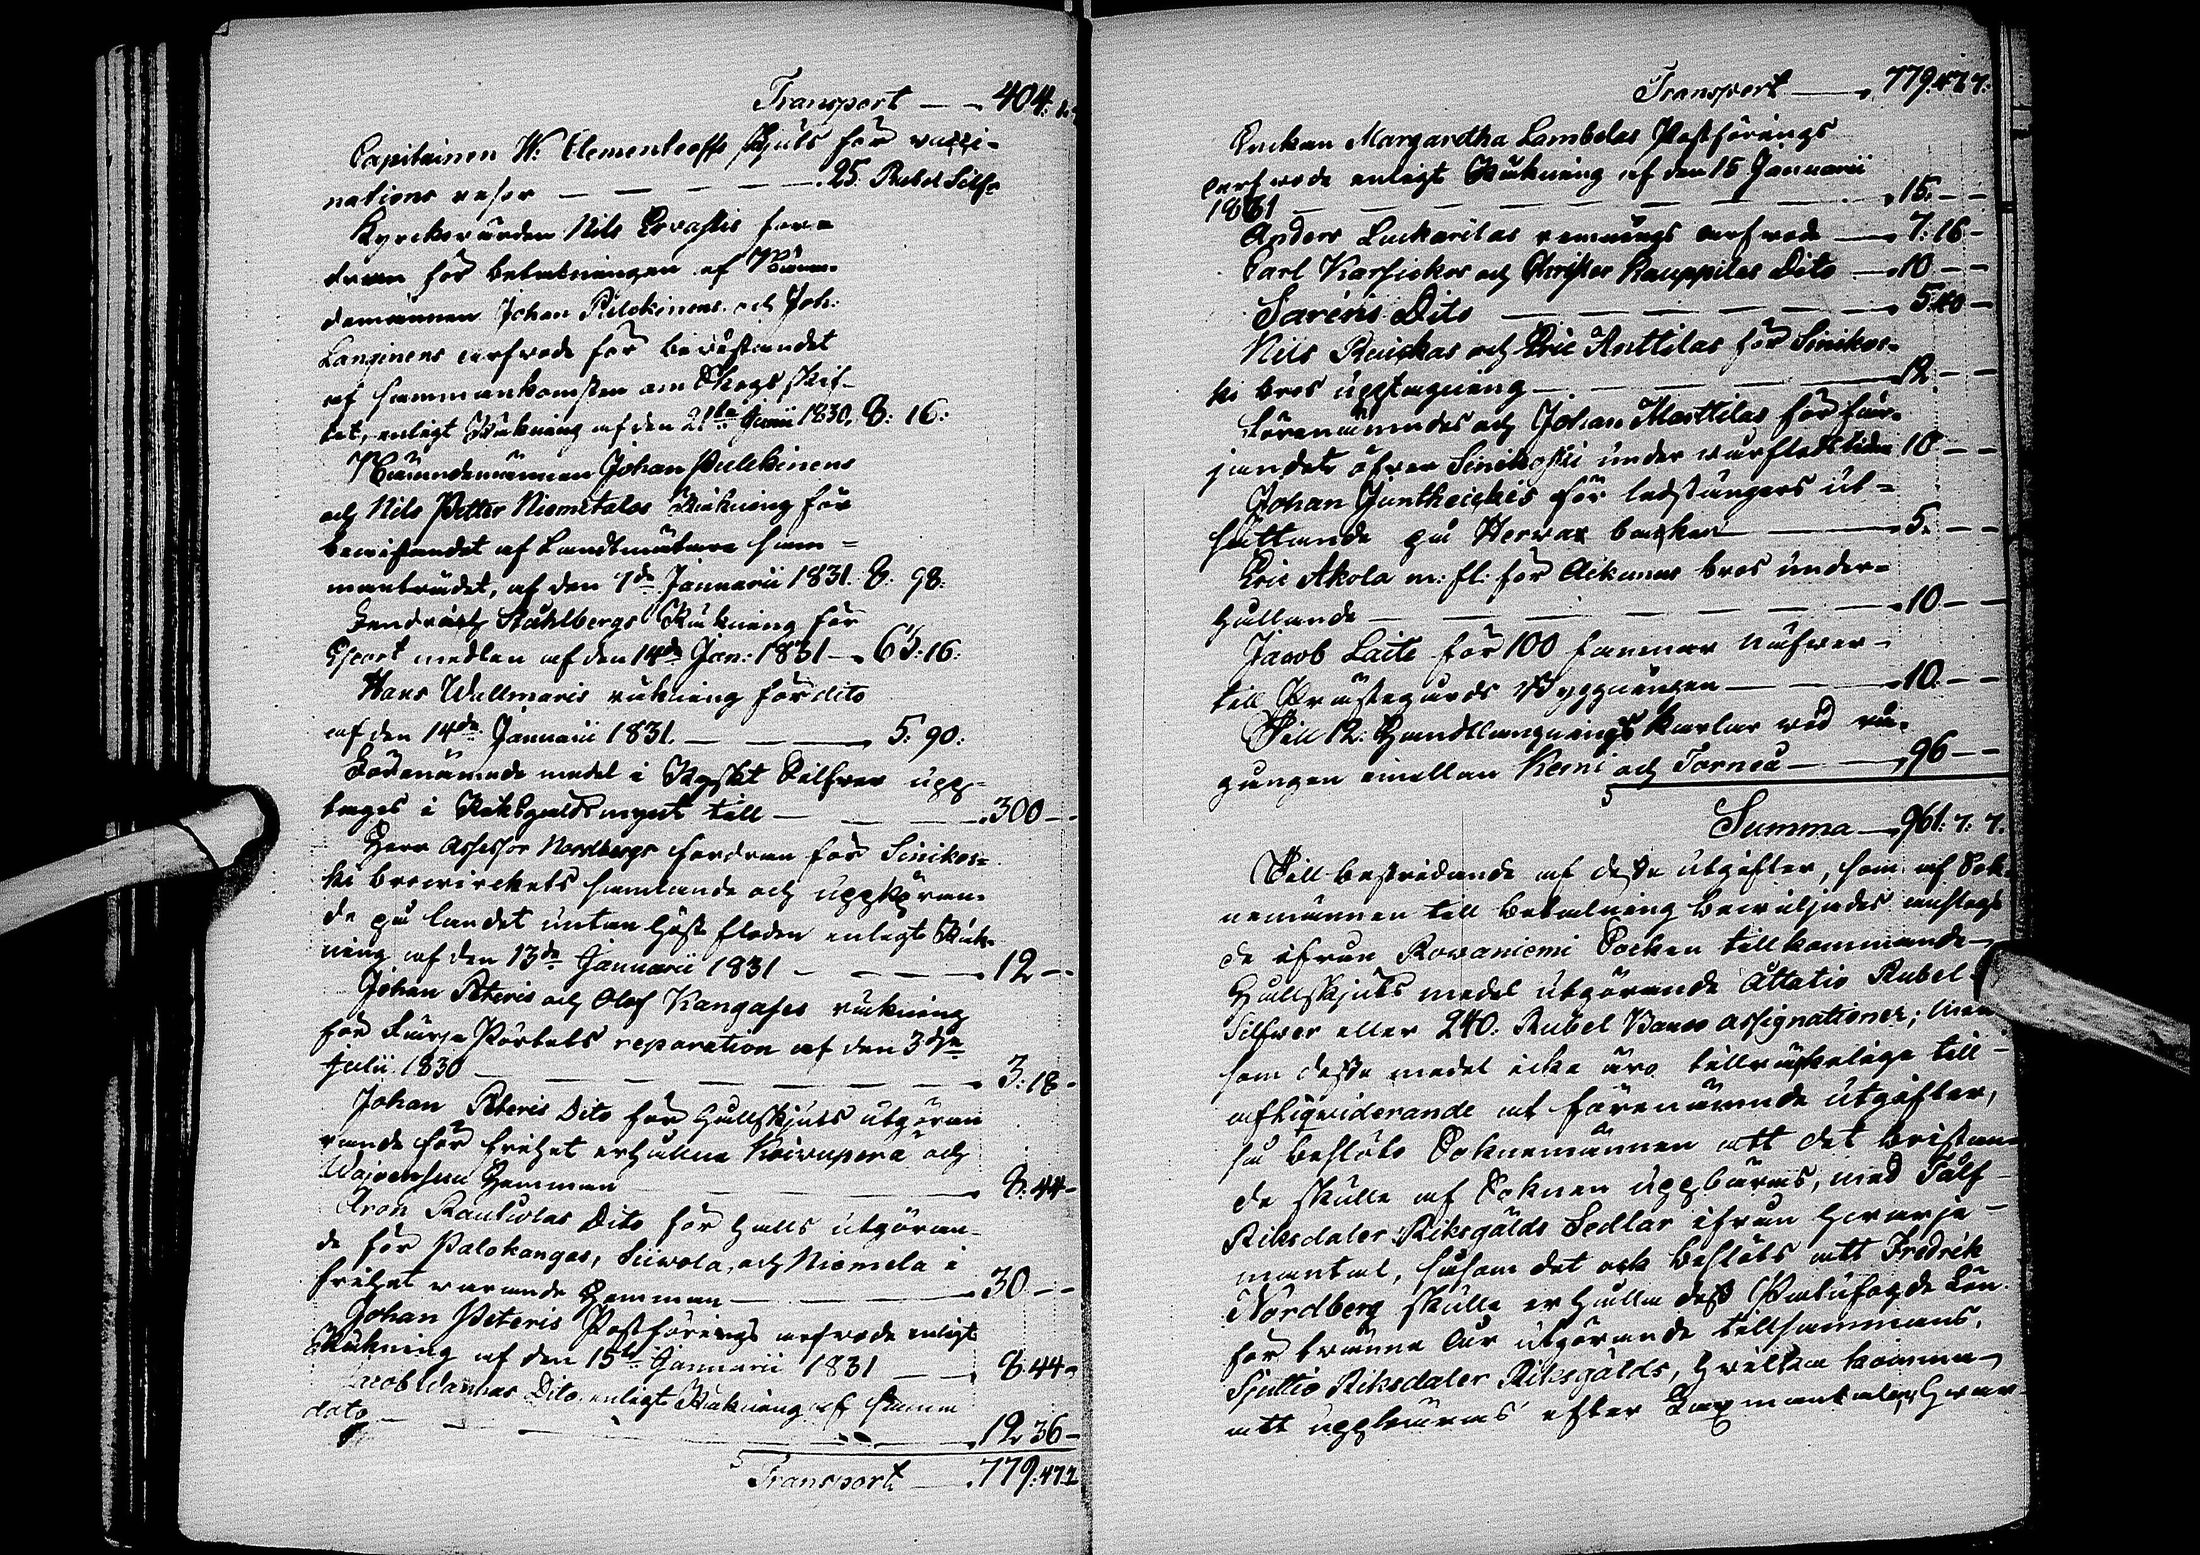 Transport — — 404:
Capitainen W: Clementeoffs skjuts för vacci-
nations resor — — — — — . 25. Rubel Silf:
Kyrckovärden Nils Ervastis for=
dran för betalningen af Nämn-
demännen Johan Pulckinens och Joh:
Langinens arfvode för bevistandet
af sammankomsten om Skogs skif-
tet, enligt Räkning af den 21sta Junii 1830. 8: 16:
Nämndemännen Johan Pulckinens
och Nils Petter Niemitalos Räkning för
bewistandet af Landtmätare sam=
manträdet, af den 7de Januarii 1831. 8: 98:
Ståhlbergs Räkning för
medlen af den 14de Jan: 1831 — 63:16:
Hans Wallmaris räkning för dito
af den 14de Januarii 1831. — — 5: 90:
Förenämnde medel i Ryskt Silfver upp-
tages i Riksgälds mynt till — — — 300 — -
Herr Assessor Nordbergs fordran för Sinikos=
ki browirckets samlande och uppköran-
de på landet undan höst floden enligt Räk-
ning af den 13de Januarii 1831 — — — 12 — -
Johan Peteris och Olof Kangases räkning
för Färje Pörtets reparation af den 3dje
Julii 1830 — — — — — — 3:18 -
Johan Peteris Dito för Hållskjuts utgöran
rande för frihet erhållna Koivupera och
Hemman — — — — 8:44 -
Aron Rautiolas Dito för Hålls utgöran-
de för Palokangas, Siivola, och Niemela i
frihet warande Hemman — — — 30 — -
Johan Peteris Postförings arfvode enligt
Räkning af den 15de Januarii 1831 — — 8:44 -
Jacob Dito, enligt Räkning af samma
dato — — — — — 12 36 -
Transport — . 779:47:7
Transport — 779:47:7:
Enckan Margaretha Lambelas Postförings
arfvode enligt Räkning af den 15 Januarii
1831 — — — — — — — 15. — -
Anders Luckarilas remnings arfvode — 7:16 -
Carl Karsickos och Krister Kauppilas Dito — 10 — -
Saréns Dito — — — — — 5:40 -
Nils Rauckas och Eric Anttilas för Sinikos-
ki bros upptagning — — — — 12 — -
Förenämndes och Johan Marttilas för fär-
jandet öfver Sinikoski under vårflods tiden 10 — -
Johan Juntheickis för ledstängers ut=
sättande på Herwax backen — — 5. — -
Eric Akola m: fl: för Aikanas bros under=
hållande — — — — — — 10 — -
Jacob Laite för 100 famnar näfver -
till Prästegårds Byggningen — — — 10 — -
Till 12. Handtlangnings Karlar vid rå-
gången emellan Kemi och Torneå — — 96 — -
Summa — 961:7:7.
Till bestridande af dessa utgifter, som af Sok-
nemännen till betalning bewiljades anslogs
de ifrån Rovaniemi Socken tillkommande
Hållskjuts medel utgörande Åttatio Rubel
Silfver eller 240. Rubel Banco assignationer; men
som dessa medel icke äro tillräckelige till -
afliqviderande af förenämnde utgifter,
så beslöto Soknemännen att det bristan-
de skulle af Soknen uppbäras, med Tolf -
Riksdaler Riksgälds Sedlar ifrån hwarje -
mantal, såsom det ock beslöts att Fredrik
Nordberg skulle erhålla dess Lön
för tvänne åur utgörande tillsammans,
Sjuttio Riksdaler Riksgälds, hvilka komma
att uppbäras efter mantalen, hvar-